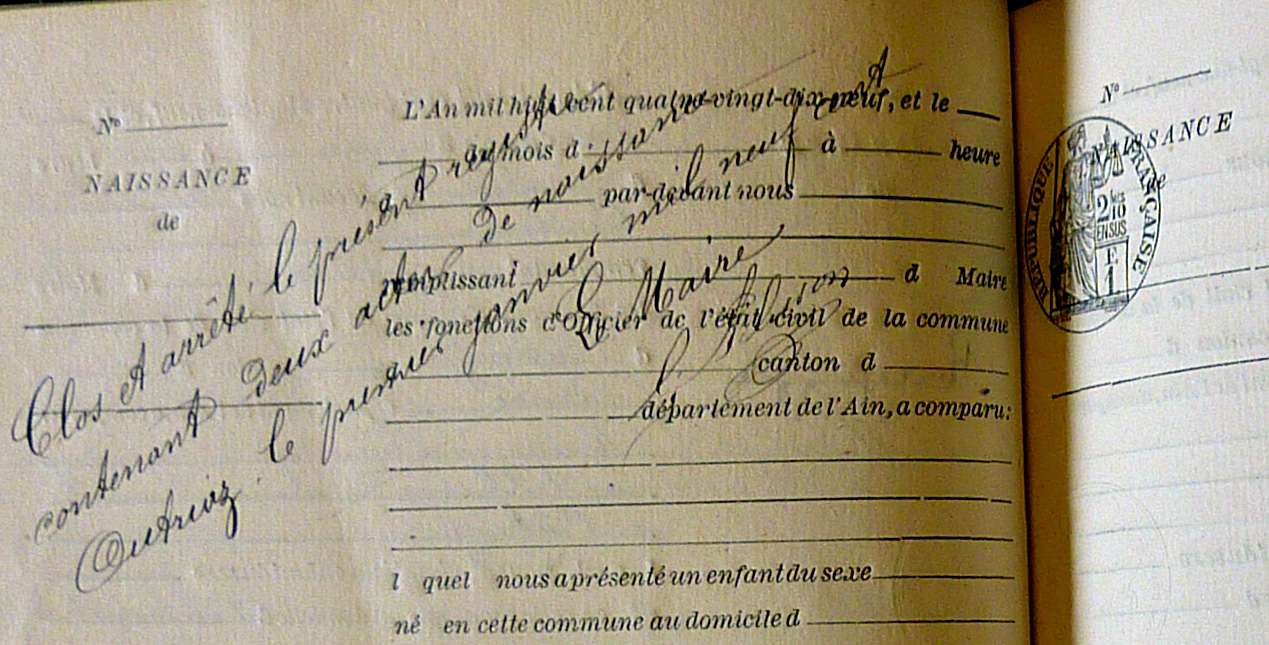 N°
NAISSANCE
de
L'An mil huit cent quatre-vingt-dix-neuf, et le
du mois d à heure
d par-devant nous
remplissant d Maire
les fonctions d'Officier de l'état civil de la commune
d canton d
département de l'Ain, a comparu:
l quel nous a présenté un enfant du sexe
né en cette commune au domicile d
Clos et arrêté le présent registre
contenant deux actes de naissance et
Outriaz le premier janvier mil neuf cent
Le Maire
N°
NAISSANCE
de
RÉPUBLIQUE FRANÇAISE
2/10
EN SUS
E
1